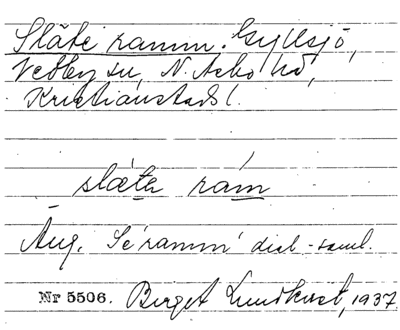 Släte ramm. Gyllsjö,
Vedby sn, N. Åsbo hd,
Kristianstads l.
slæta rám
Äng. Se ramm' dial-saml.
Nr 5506. Birget Lundkvist, 1937